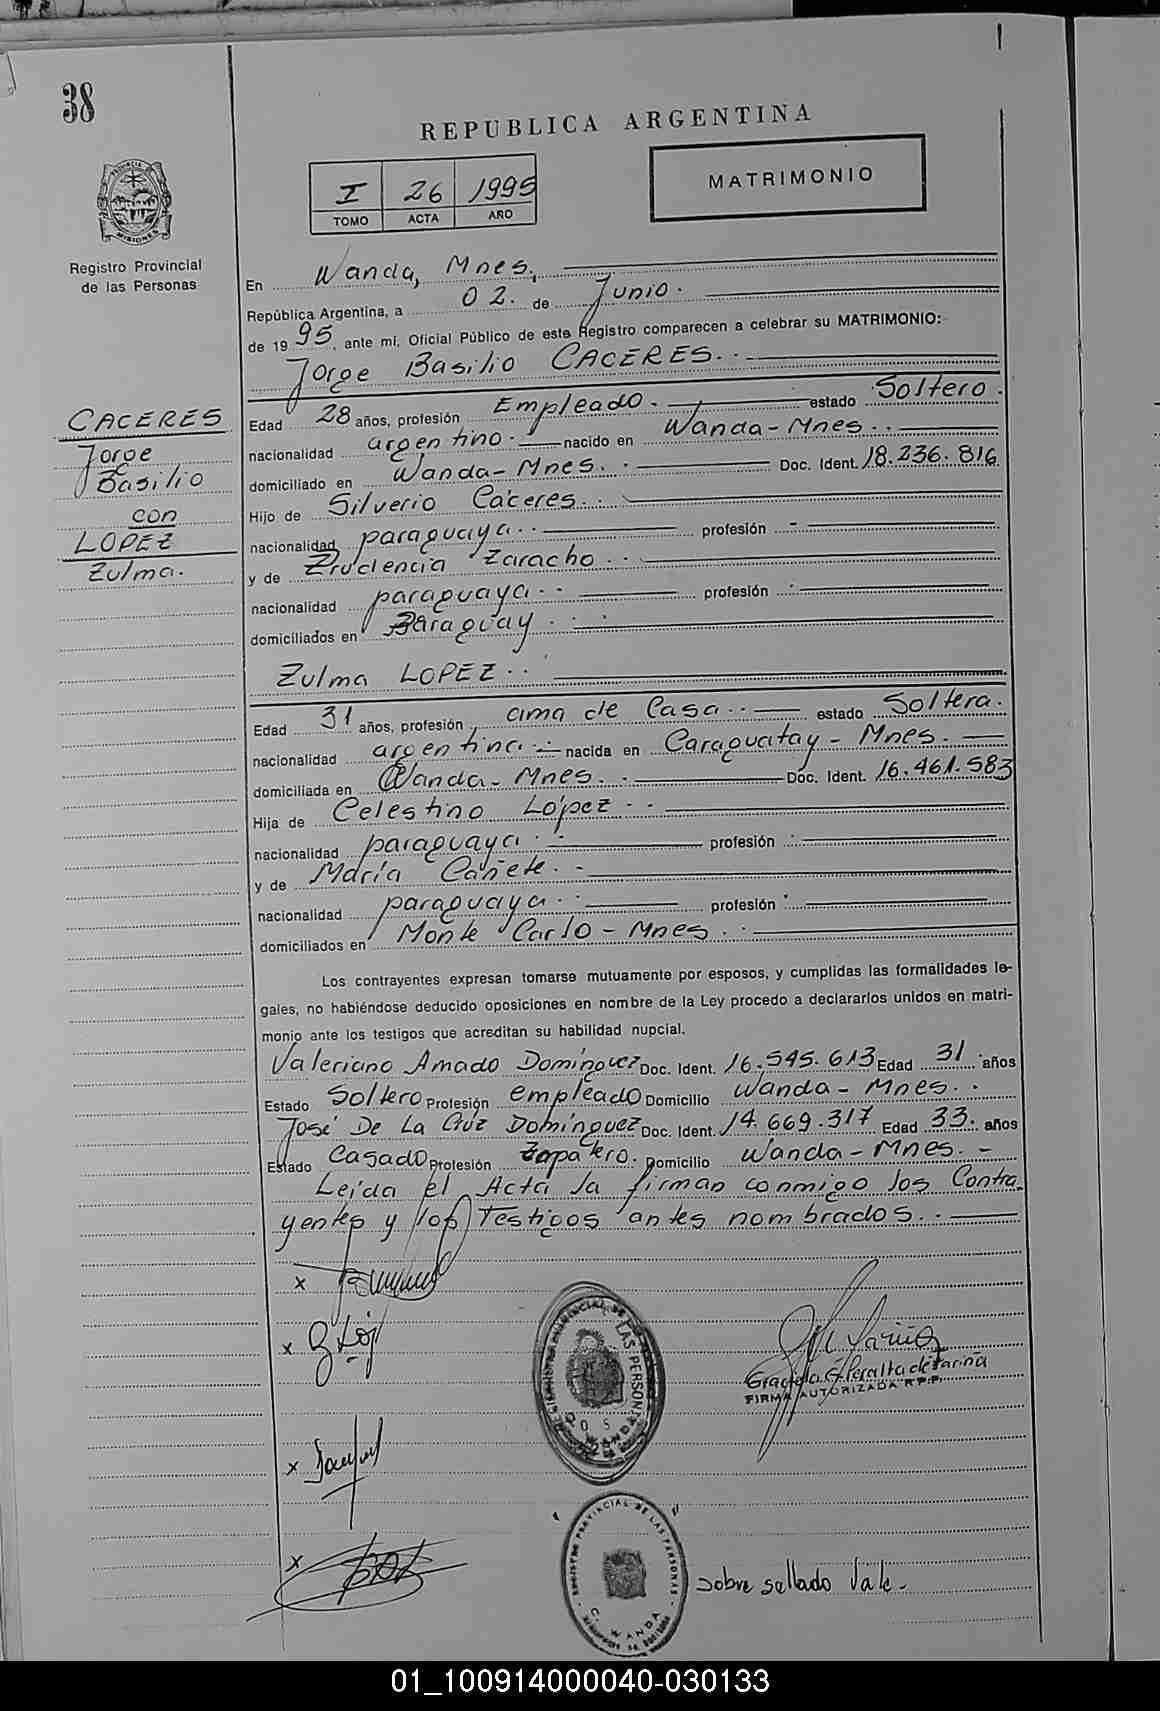 38
REPUBLICA ARGENTINA
I 26 1995
TOMO ACTA AÑO
MATRIMONIO
PROVINCIA
MISIONES
Registro Provincial
de las Personas
En Wanda, Mnes.
República Argentina, a 02. de Junio.
de 1995, ante mi, Oficial Público de este Registro comparecen a celebrar su MATRIMONIO:
Jorge Basilio CACERES.
Edad 28 años, profesión Empleado. estado Soltero.
nacionalidad argentino. nacido en Wanda-Mnes.
domiciliado en Wanda-Mnes. Doc. Ident. 18.236.816
Hijo de Silverio Caceres.
nacionalidad paraguaya. profesión -
y de Prudencia Zaracho.
nacionalidad paraguaya. profesión
domiciliados en Paraguay.
CACERES
Jorge
Basilio
con
LOPEZ
Zulma.
Zulma LOPEZ.
Edad 31 años, profesión ama de Casa. estado Soltera.
nacionalidad argentina. nacida en Caraguatay-Mnes.
domiciliada en Wanda-Mnes. Doc. Ident. 16.461.583
Hija de Celestino López.
nacionalidad paraguaya. profesión
y de María Cañete.
nacionalidad paraguaya. profesión
domiciliados en Monte Carlo-Mnes.
Los contrayentes expresan tomarse mutuamente por esposos, y cumplidas las formalidades le-
gales, no habiéndose deducido oposiciones en nombre de la Ley procedo a declararlos unidos en matri-
monio ante los testigos que acreditan su habilidad nupcial.
Valeriano Amado Domínguez Doc. Ident. 16.545.613 Edad 31 años
Estado Soltero Profesión empleado Domicilio Wanda-Mnes.
José De La Cruz Domínguez Doc. Ident. 14.669.317 Edad 33. años
Estado Casado Profesión Zapatero. Domicilio Wanda-Mnes.
Leída el Acta la firman conmigo los Contra-
yentes y los Testigos antes nombrados.
x
x
Graciela G. Peralta de Fariña
FIRMA AUTORIZADA R.P.P.
x
x
REGISTRO PROVINCIAL DE LAS PERSONAS
WANDA
sobre sellado Vale-
01_100914000040-030133